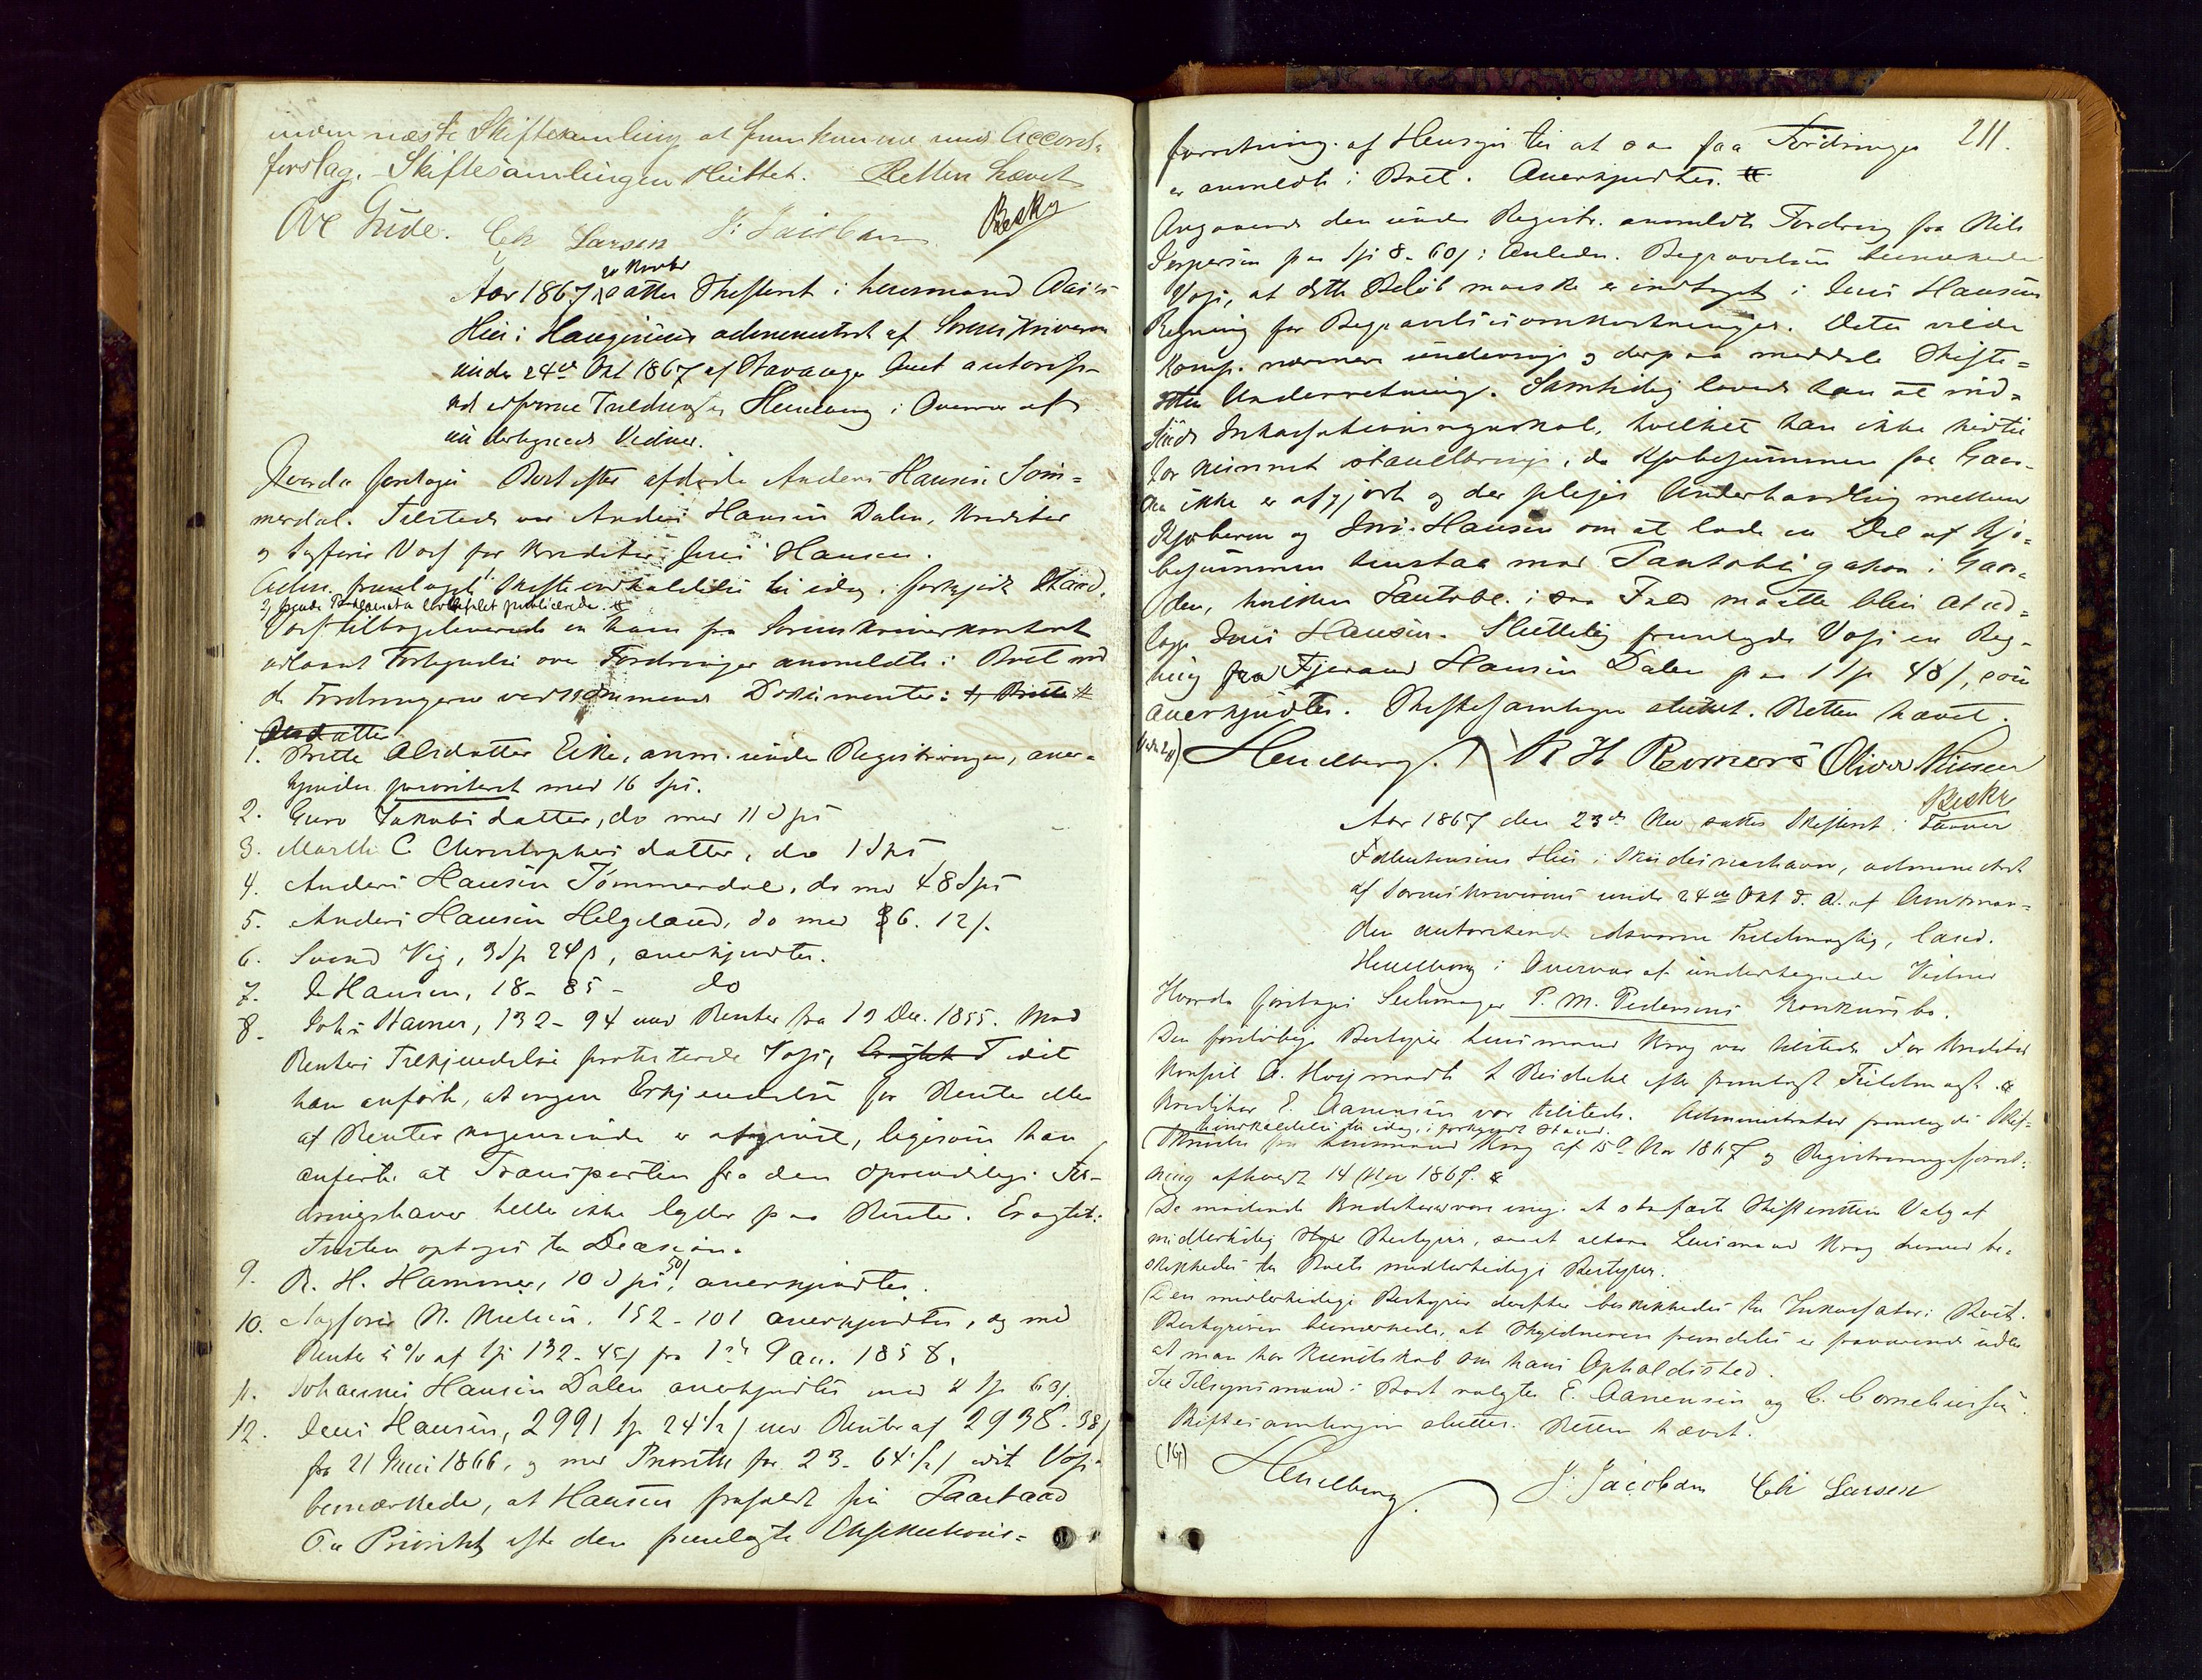 inden næste Skiftesamling at fremkomme med Accord-
forslag. Skiftesamlingen sluttet. Retten hævet
Ove Gude. Ch Larsen J. Jacobsen Beskr
20 Novbr
Aar 1867 sattes Skifteret i Lensmand
Huus i Haugesund administreret af Sorenskriverens
under 24de Okt 1867 af Stavanger Amt autorise-
rede edsvorne Fuldmægtig Heuelberg i Overvær af
undertegnede Vidner.
Hvorda foretoges Boet efter afdøde Anders Hansen Töm-
merdal. Tilstede var Anders Hansen Dalen, Kreditor
og Sagfører Vogt for Kreditor Jens Hansen.
Adm. fremlagde Skifteindkaldelse til idag i forkyndt Stand.
tilbageleverede en ham fra Sorenskriverkontoret
udlaant Fortegnelse over Fordringer anmeldte i Boet med
de Fordringerne vedkommende Dokumenter: 1, Britte
Olsdatter
1. Britte Olsdatter Eike, anm. under Registreringen, aner-
kjendes prioriteret med 16 Spd.
2. Guro Jakobsdatter, do med 11 Spd
3. Marthe C. Christophersdatter, do 1 Spd
4. Anders Hansen Tömmerdal, do med 48 Spd
5. Anders Hansen Helgeland, do med 36. 12 s.
6. Svend Vig, 3 Sp 24 s, anerkjendtes.
7. J. Hansen, 18 - 85 - do
8. Johs Hamer, 132 - 94 med Renter fra 19 Dec. 1855. Mod
Renters Tilkjendelse protesterede Vogt, idet
han anførte, at ingen Erkjendelse for Rente eller
af Renter nogensinde er afgivet, ligesom han
anførte at Transporten fra den oprindelige For-
dringshaver heller ikke lyder paa Renter.
Tvisten optoges til Decision.
9. R. H. Hammer, 10 Spd 50 s, anerkjendtes.
10. Sagfører N. Nielsen, 152 - 101 anerkjendtes, og med
Renter 5 % af Sp 132 - 45 s fra 1ste Jan. 1858.
11. Johannes Hansen Dalen anerkjendtes med 4 Sp 63 s.
12. Jens Hansen, 2991 Sp 24 1/2 s med Renter af 2938. 38 s
fra 21 Juni 1866, og med Prioritet for 23 - 64 1/2 s idet Vogt
bemærkede, at Hansen frafaldt sin Paastand
om Prioritet efter den fremlagte Exsekutions-
211.
forretning af Hensyn til at saa faa Fordringer
er anmeldte i Boet. Anerkjendtes.
Angaaende den under Registr. anmeldte Fordring fra Nils
Jespersen paa Sp 8 - 60 s i Anledn. Begravelsen bemærkede
Vogt, at dette Beløb maaske er indtaget i Jens Hansens
Regning for Begravelsesomkostninger. Dette vilde
Komp. nærmere undersøge og derpaa meddele Skifte-
retten Underretning. Samtidig lovede han at ind-
sende Inkassationsregnskab, hvilket han ikke hidtil
har kunnet istandbringe, da Kjøbesummen for Gaar-
den ikke er afgjort og der pleies Underhandling mellem
Kjøberen og Jens Hansen om at lade en Del af Kjø-
besummen henstaa mod Panteobligation i Gaar-
den, hvilken Panteobl. i saa Fald maatte blive at ud-
lægge Jens Hansen. Sluttelig fremlagde Vogt en Reg-
ning fra Tjerand Hansen Dalen paa 1 Sp 48 s, som
anerkjendtes. Skiftesamlingen sluttet. Retten hævet.
Heuelberg. R H Reimers Oliver Nilsen
Beskr
Aar 1867 den 23de Nov sattes Skifteret i
Huus i Skudesneshavn, administreret
af Sorenskriverens under 24de Okt d. A. af Amtman-
den autoriserede edsvorne Fuldmægtig, cand.
Heuelberg i Overvær af undertegnede Vidner
Hvorda foretoges Seilmager P. M. Pedersens Konkursbo.
Den foreløbige Bestyrer Lensmand Krog var tilstede. For Kreditor
Konsul O. Kreditor E. Aanensen var tilstede. Administrator fremlagde Skif-
teindkaldelse til idag i forkyndt Stand.
Skrivelse fra Lensmand Krog af 15de Nov 1867 og Registreringsforret-
ning afholdt 14 Nov 1867.
De mødende Kreditorer vare enige i at overlade Skifteretten Valg af
midlertidig Bestyrer, samt at Lensmand Krog herved be-
skikkedes til Boets midlertidige Bestyrer.
Den midlertidige Bestyrer derefter beskikkedes til Inkassator i Boet.
Bestyreren bemærkede, at Skyldneren fremdeles er fraværende uden
at man har Kundskab om hans Opholdssted.
Til Tilsynsmænd i Boet valgtes E. Aanensen og C. Corneliussen.
Skiftesamlingen sluttes. Retten hævet.
Heuelberg. J. Jacobsen Ch Larsen